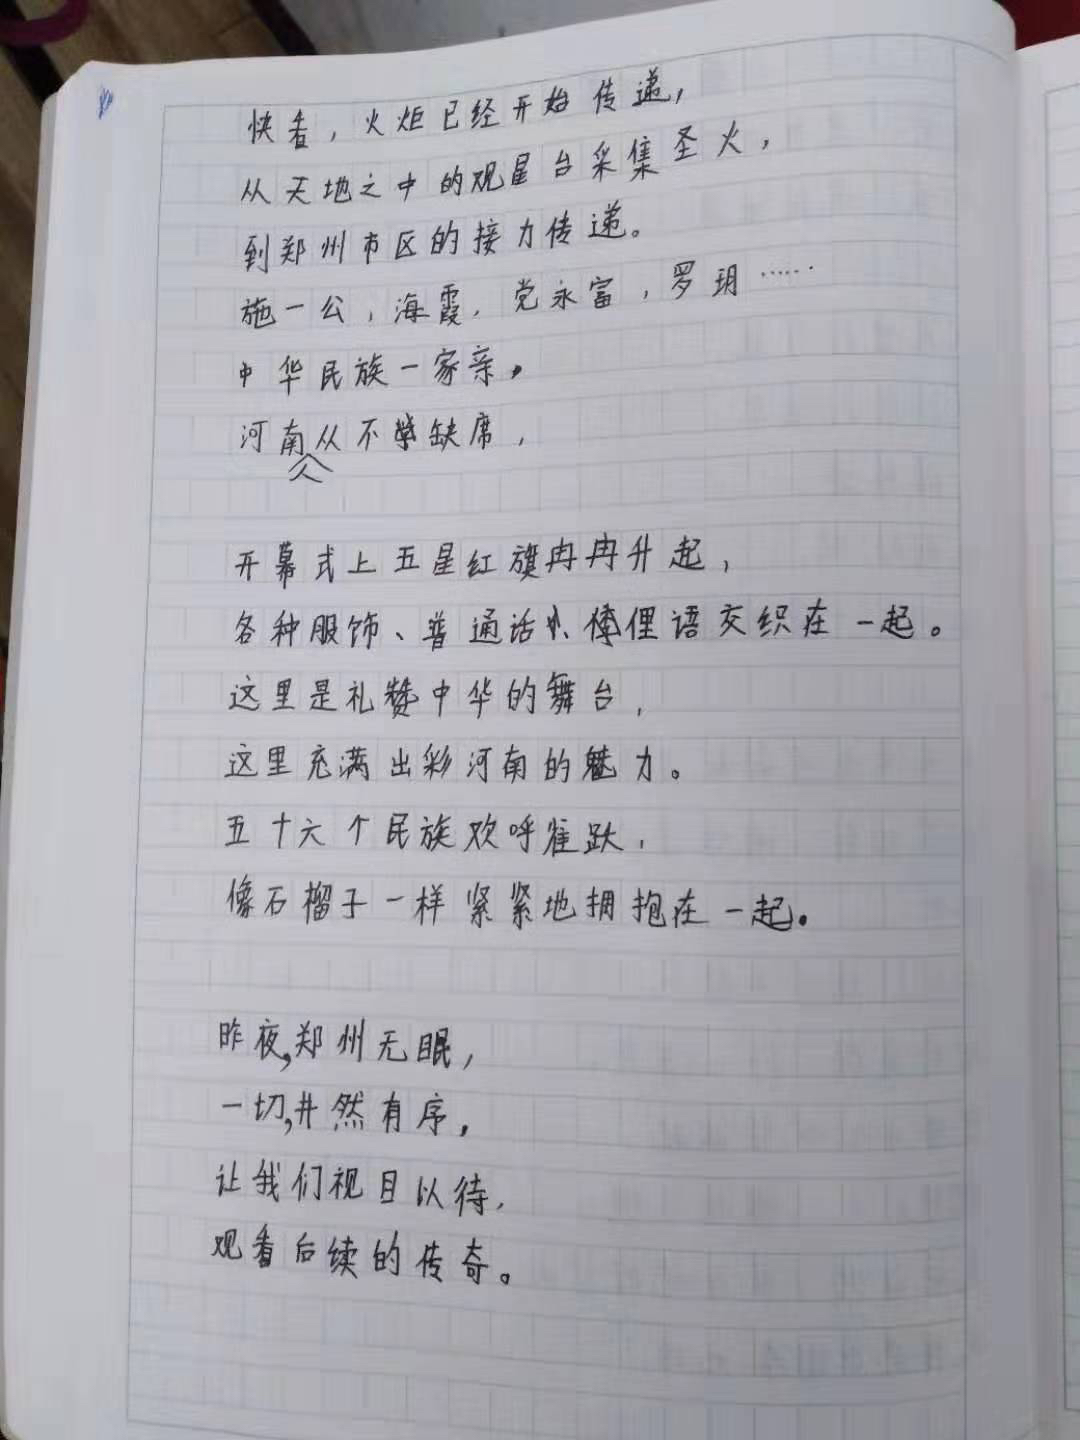 快看，火炬已经开始传递，
从天地之中的观星台采集圣火，
到郑州市区的接力传递。
施一公，海霞，党永富，罗玥……
中华民族一家亲，
河南人从不缺席，
开幕式上五星红旗冉冉升起，
各种服饰、普通话、俚语交织在一起。
这里是礼赞中华的舞台，
这里充满出彩河南的魅力。
五十六个民族欢呼雀跃，
像石榴子一样紧紧地拥抱在一起。
昨夜，郑州无眠，
一切，井然有序，
让我们视目以待，
观看后续的传奇。